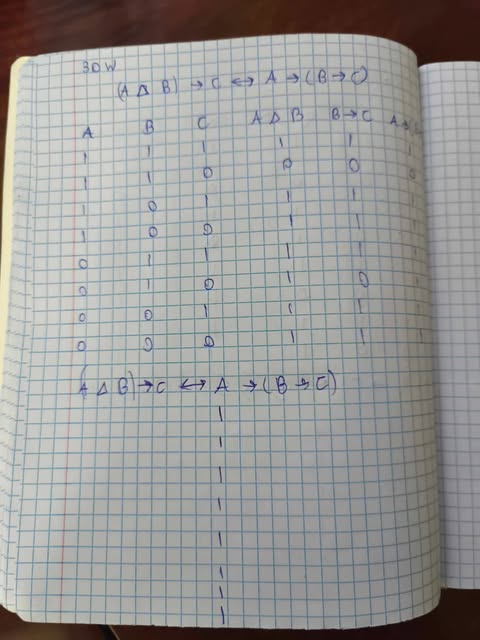 3DW
(A Δ B) → C ↔ A → (B → C)
A B C A Δ B B → C A →
1 1 1 1 1 1
1 1 0 0 0 0
1 0 1 1 1 1
1 0 0 1 1 1
0 1 1 1 1 1
0 1 0 1 0 1
0 0 1 1 1 1
0 0 0 1 1 1
(A Δ B) → C ↔ A → (B → C)
1
1
1
1
1
1
1
1